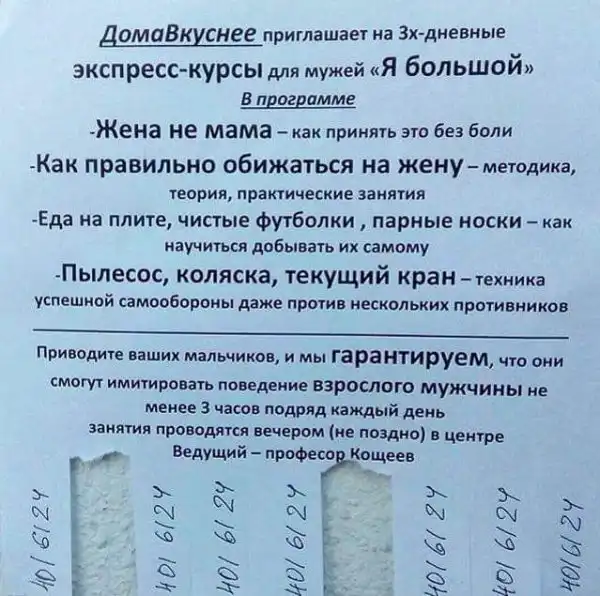 ДомаВкуснее приглашает на 3х-дневные
экспресс-курсы для мужей «Я большой»
В программе
-Жена не мама – как принять это без боли
-Как правильно обижаться на жену – методика,
теория, практические занятия
-Еда на плите, чистые футболки , парные носки – как
научиться добывать их самому
-Пылесос, коляска, текущий кран – техника
успешной самообороны даже против нескольких противников
Приводите ваших мальчиков, и мы гарантируем, что они
смогут имитировать поведение взрослого мужчины не
менее 3 часов подряд каждый день
занятия проводятся вечером (не поздно) в центре
Ведущий – професор Кощеев
4016124
4016124
4016124
4016124
4016124
4016124
4016124